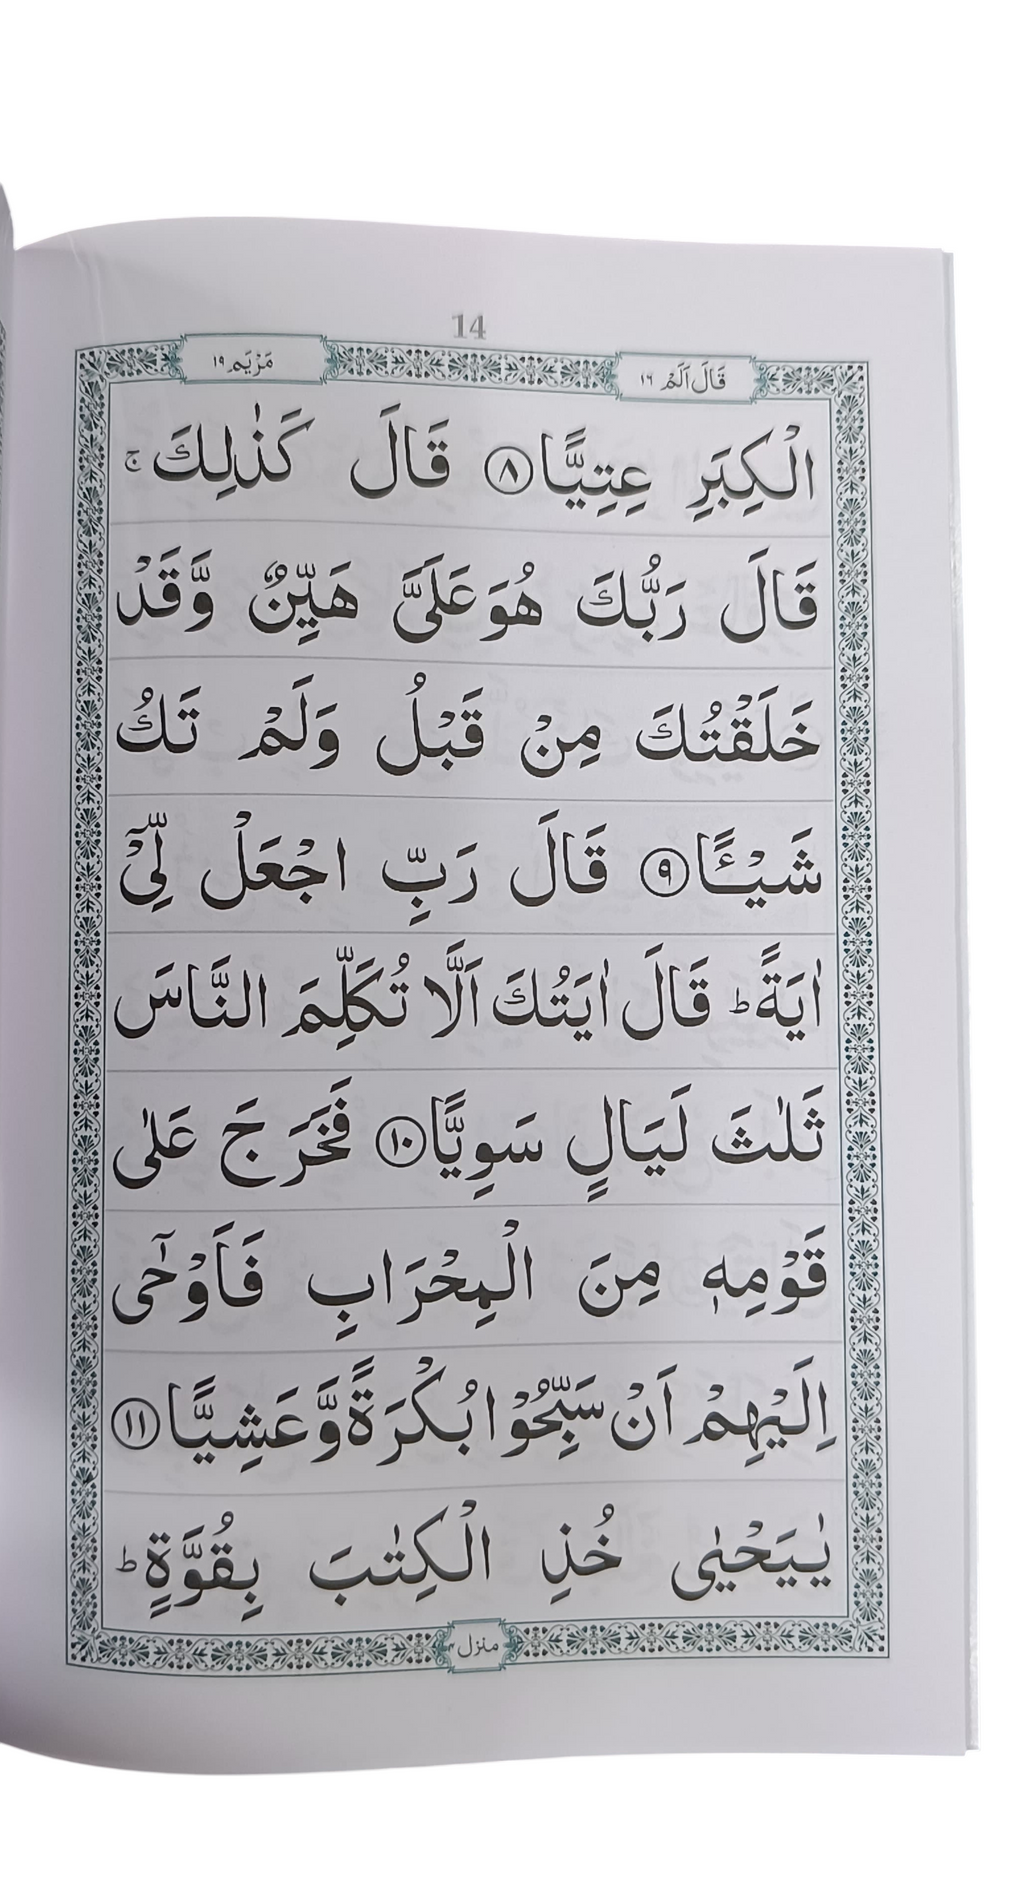 14
قَالَ اَلَمْ ١٦
مَرْيَم ١٩
الْكِبَرِ عِتِيًّا ۝٨ قَالَ كَذٰلِكَ ۚ
قَالَ رَبُّكَ هُوَ عَلَىَّ هَيِّنٌ وَّقَدْ
خَلَقْتُكَ مِنْ قَبْلُ وَلَمْ تَكُ
شَيْـًٔا ۝٩ قَالَ رَبِّ اجْعَلْ لِّىْٓ
اٰيَةً ؕ قَالَ اٰيَتُكَ اَلَّا تُكَلِّمَ النَّاسَ
ثَلٰثَ لَيَالٍ سَوِيًّا ۝١٠ فَخَرَجَ عَلٰى
قَوْمِهٖ مِنَ الْمِحْرَابِ فَاَوْحٰٓى
اِلَيْهِمْ اَنْ سَبِّحُوْا بُكْرَةً وَّعَشِيًّا ۝١١
يٰيَحْيٰى خُذِ الْكِتٰبَ بِقُوَّةٍ ؕ
منزل ۴